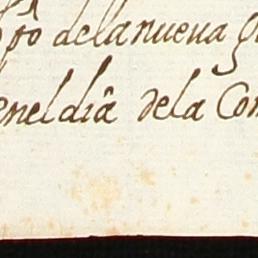 pto delanueva
eneldiâ dela Con